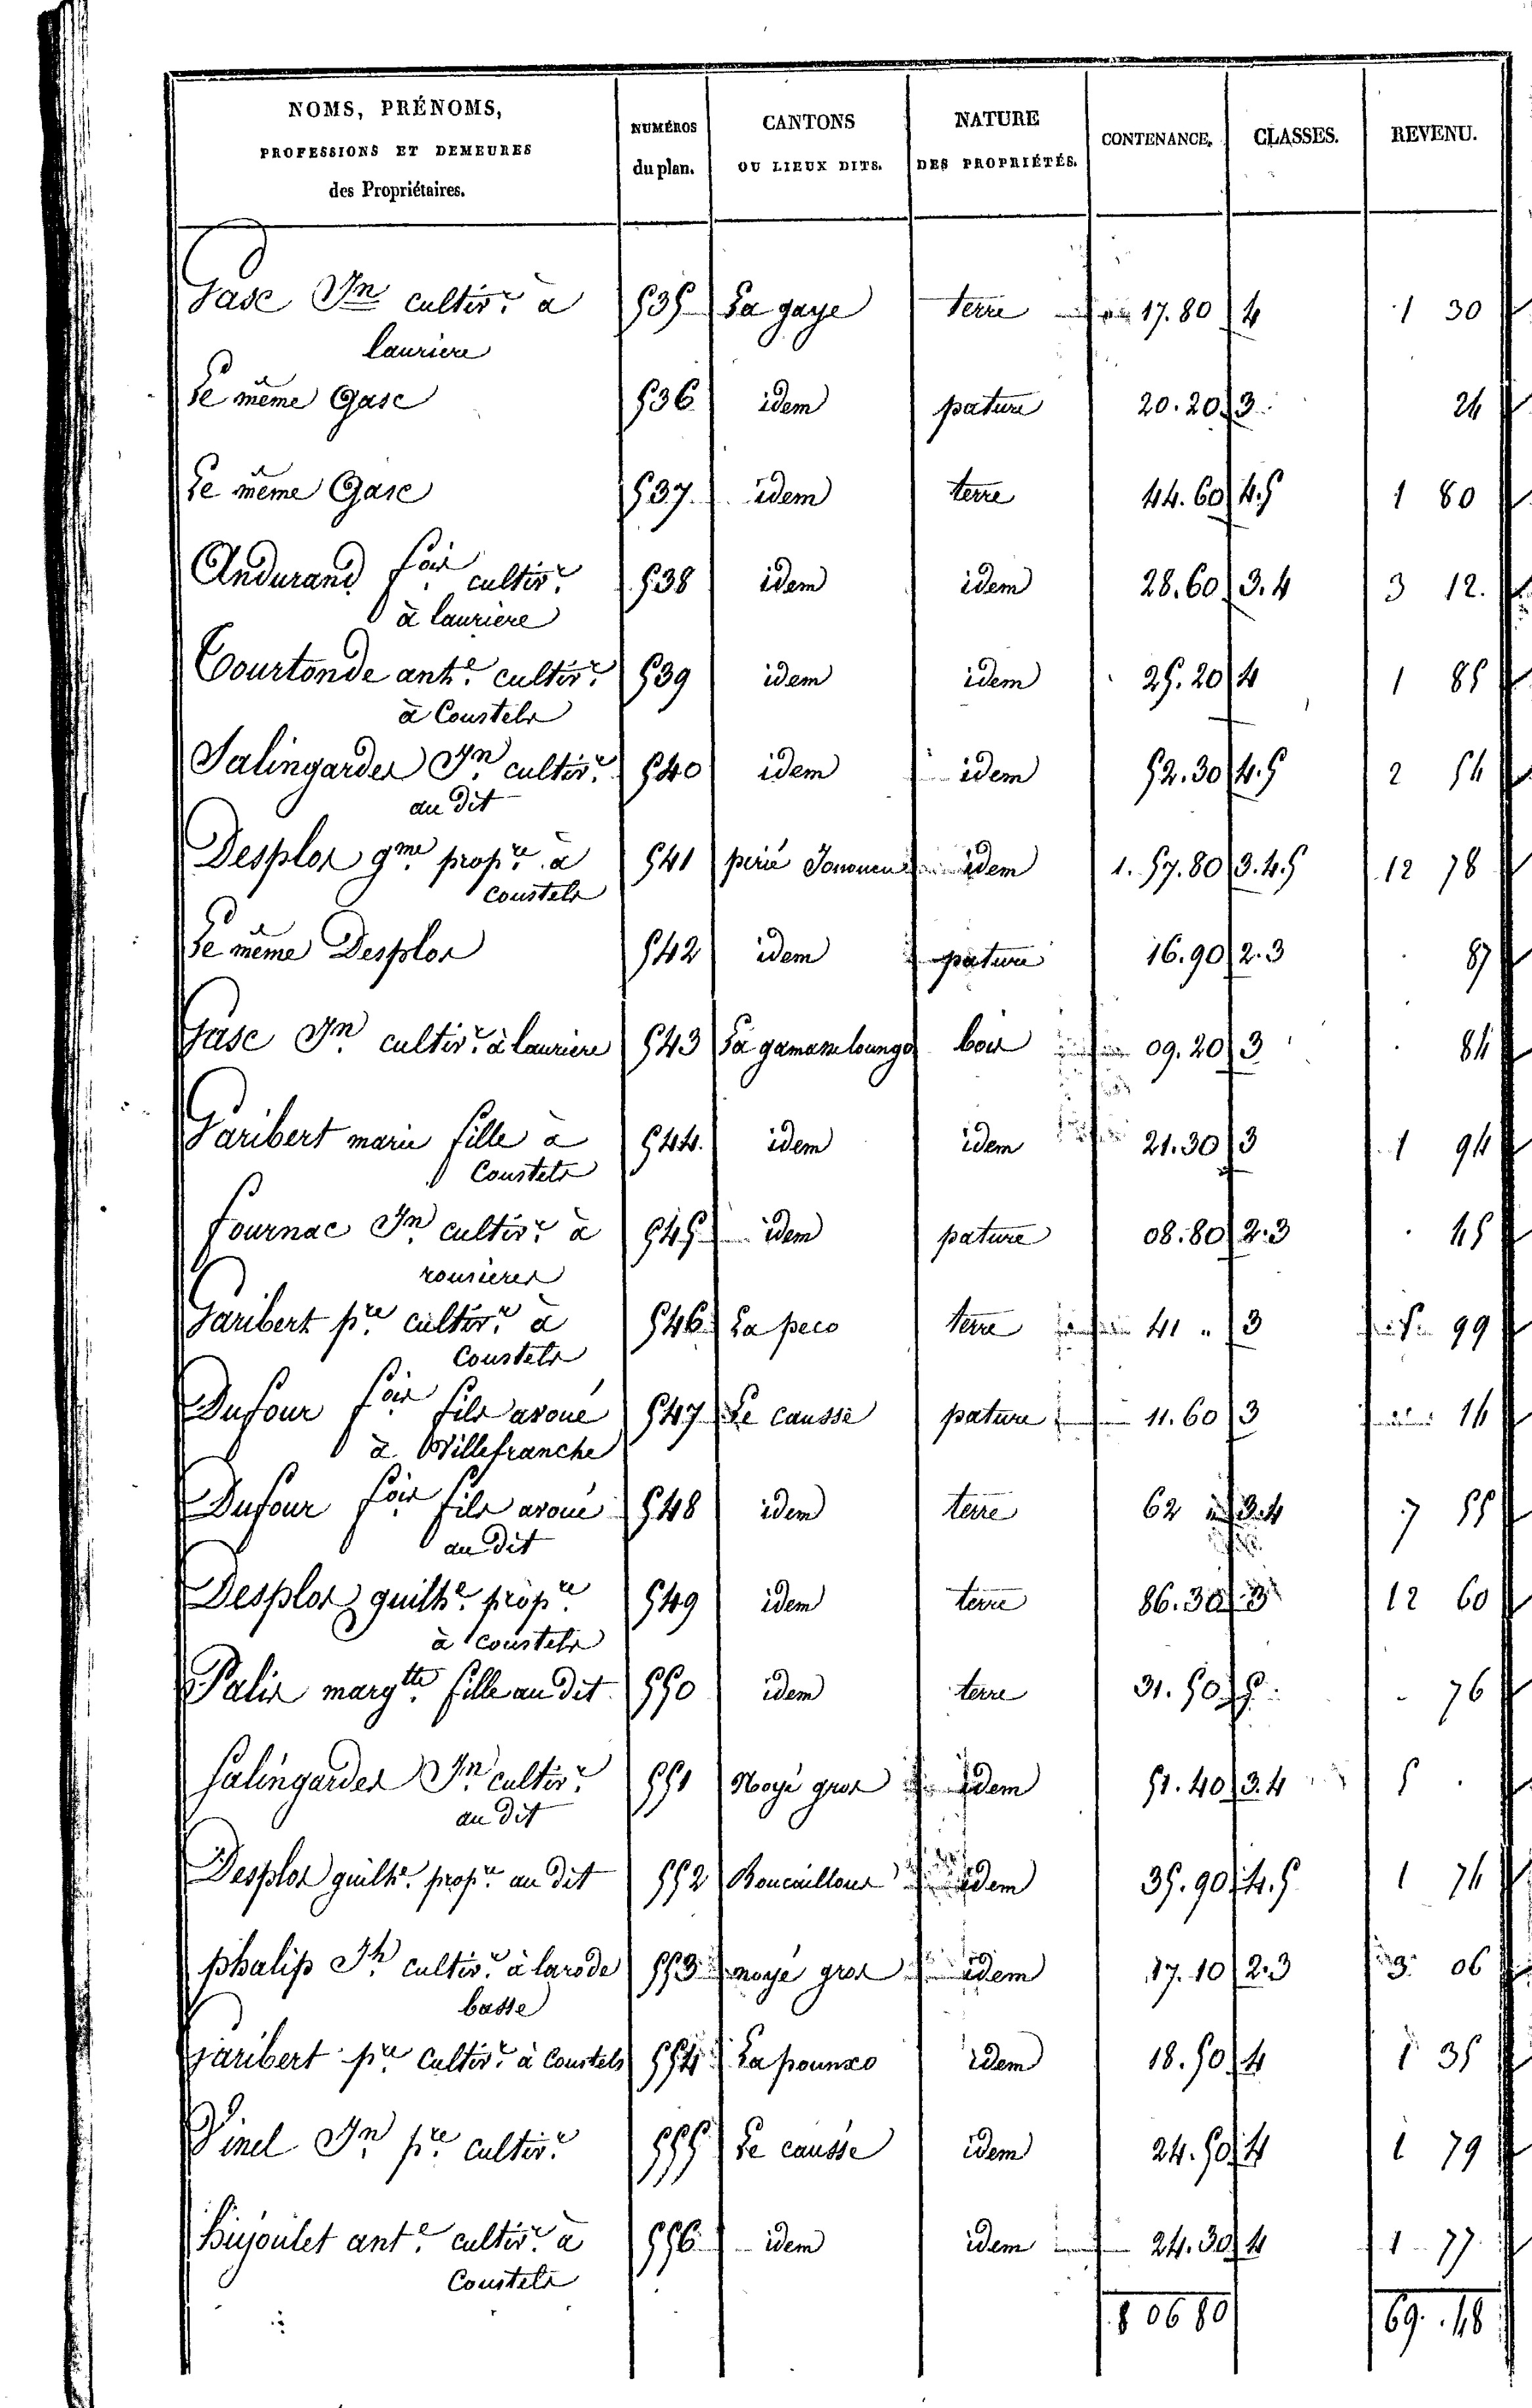 NOMS, PRÉNOMS, PROFESSIONS ET DEMEURES des Propriétaires. | NUMÉROS du plan. | CANTONS OU LIEUX DITS. | NATURE DES PROPRIÉTÉS. | CONTENANCE. | CLASSES. | REVENU.
Gasc Jn cultivr à | 535 | La gaye | terre | 17.80 | 4 | 1 30
lauriere
Le même Gasc | 536 | idem | pature | 20.20 | 3 | 24
Le même Gasc | 537 | idem | terre | 44.60 | 4.5 | 1 80
Andurand fois cultivr | 538 | idem | idem | 28.60 | 3.4 | 3 12
à lauriere
Tourtonde ante cultivr | 539 | idem | idem | 25.20 | 4 | 1 85
à Coustels
Salingardes Jn cultivr | 540 | idem | idem | 52.30 | 4.5 | 2 54
au dit
Desplos gme propre à | 541 | perié | idem | 1.57.80 | 3.4.5 | 12 78
coustels
Le même Desplos | 542 | idem | pature | 16.90 | 2.3 | 87
Gasc Jn cultivr à lauriere | 543 | La gamasseloungo | bois | 09.20 | 3 | 84
Garibert marie fille à | 544 | idem | idem | 21.30 | 3 | 1 94
Coustels
fournac Jn cultivr à | 545 | idem | pature | 08.80 | 2.3 | 45
rousieres
Garibert pre cultivr à | 546 | La peco | terre | 41 " | 3 | 5 99
Coustels
Dufour fois fils avoué | 547 | Le causse | pature | 11.60 | 3 | 14
à Villefranche
Dufour fois fils avoué | 548 | idem | terre | 62 " | 3.4 | 7 55
au dit
Desplos guilhe propre | 549 | idem | terre | 86.30 | 3 | 12 60
à coustels
Palis margtte fille au dit | 550 | idem | terre | 31.50 | 5 | 76
Salingardes Jn cultivr | 551 | Noyé gros | idem | 51.40 | 3.4 | 5
au dit
Desplos guilhe propre au dit | 552 | Boucaillous | idem | 35.90 | 4.5 | 1 74
phalip Jh cultivr à larode | 553 | noyé gros | idem | 17.10 | 2.3 | 3 06
basse
garibert pre cultivr à Coustels | 554 | La pounxo | idem | 18.50 | 4 | 1 35
Vinel Jn pre cultivr | 555 | Le causse | idem | 24.50 | 4 | 1 79
Bujoulet ante cultivr à | 556 | idem | idem | 24.30 | 4 | 1 77
Coustels
8 06 80 | 69.48